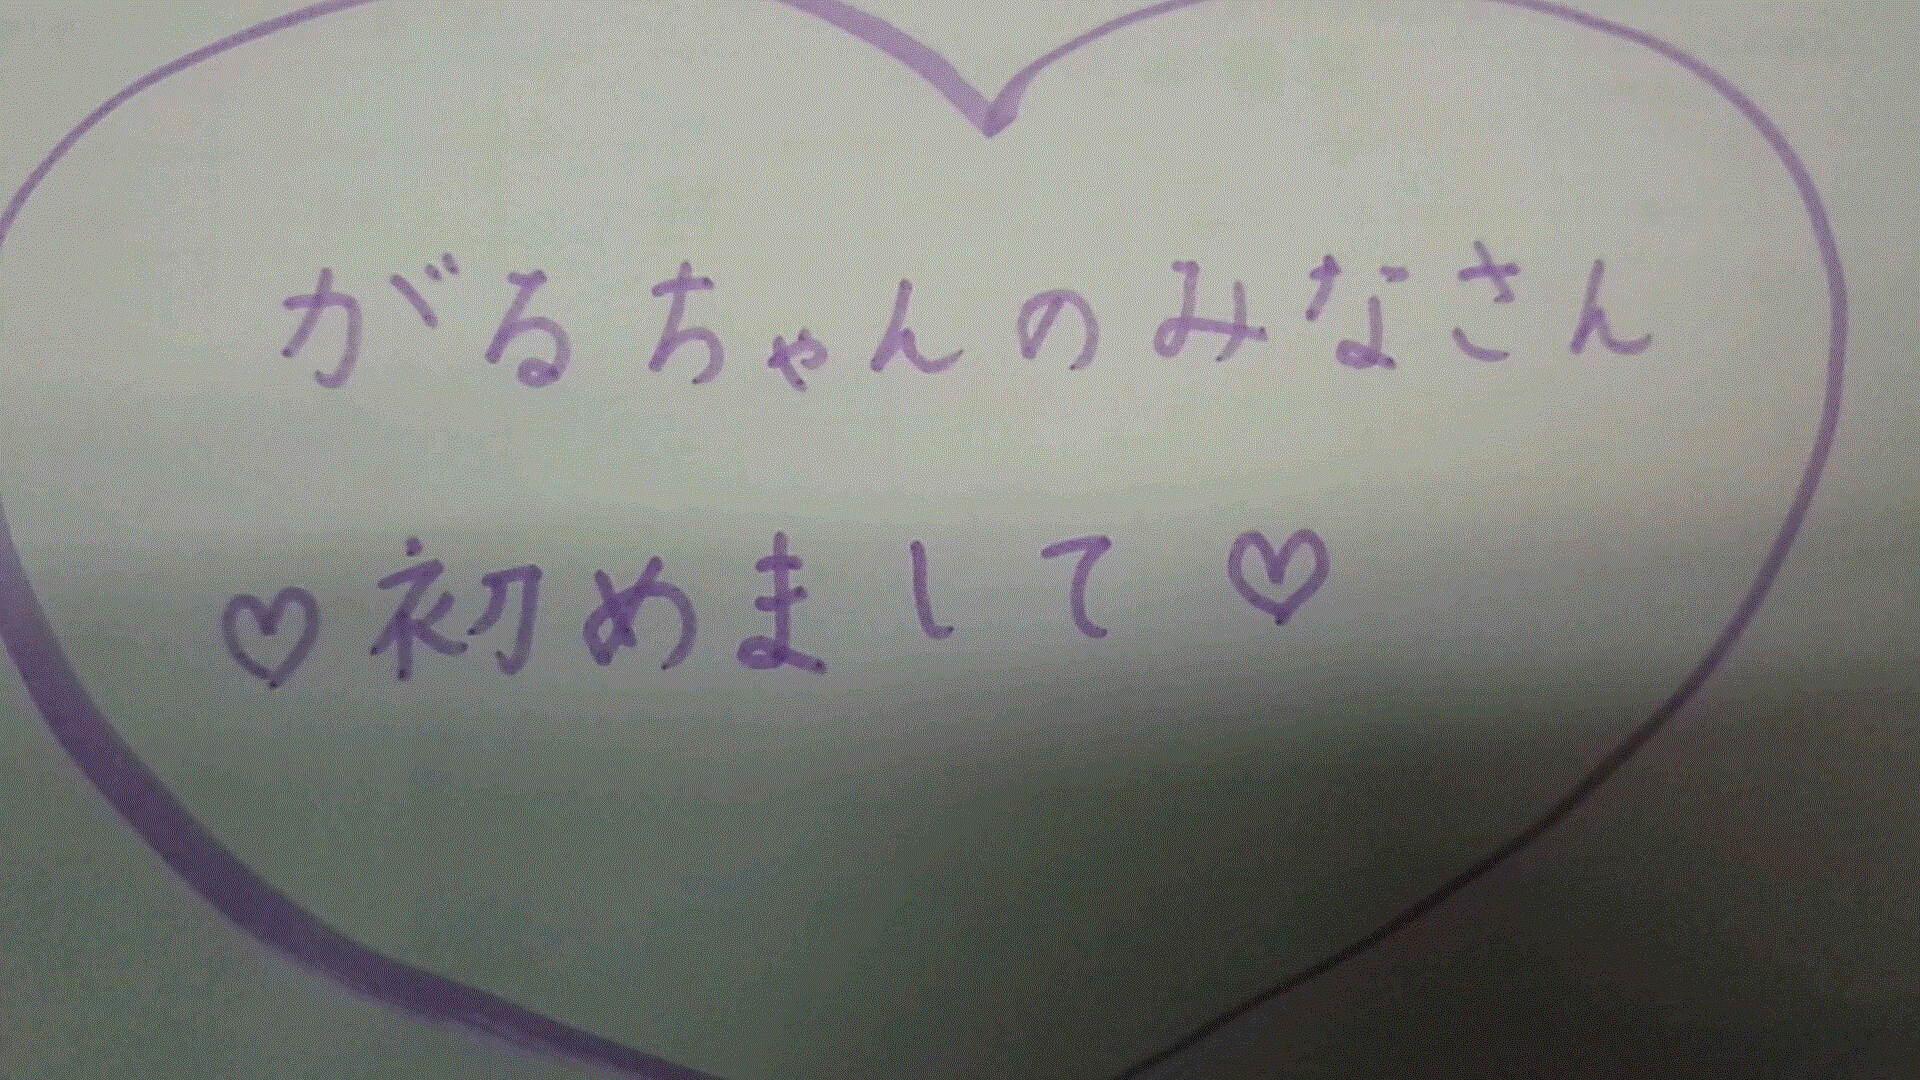 がるちゃんのみなさん
♡初めまして♡